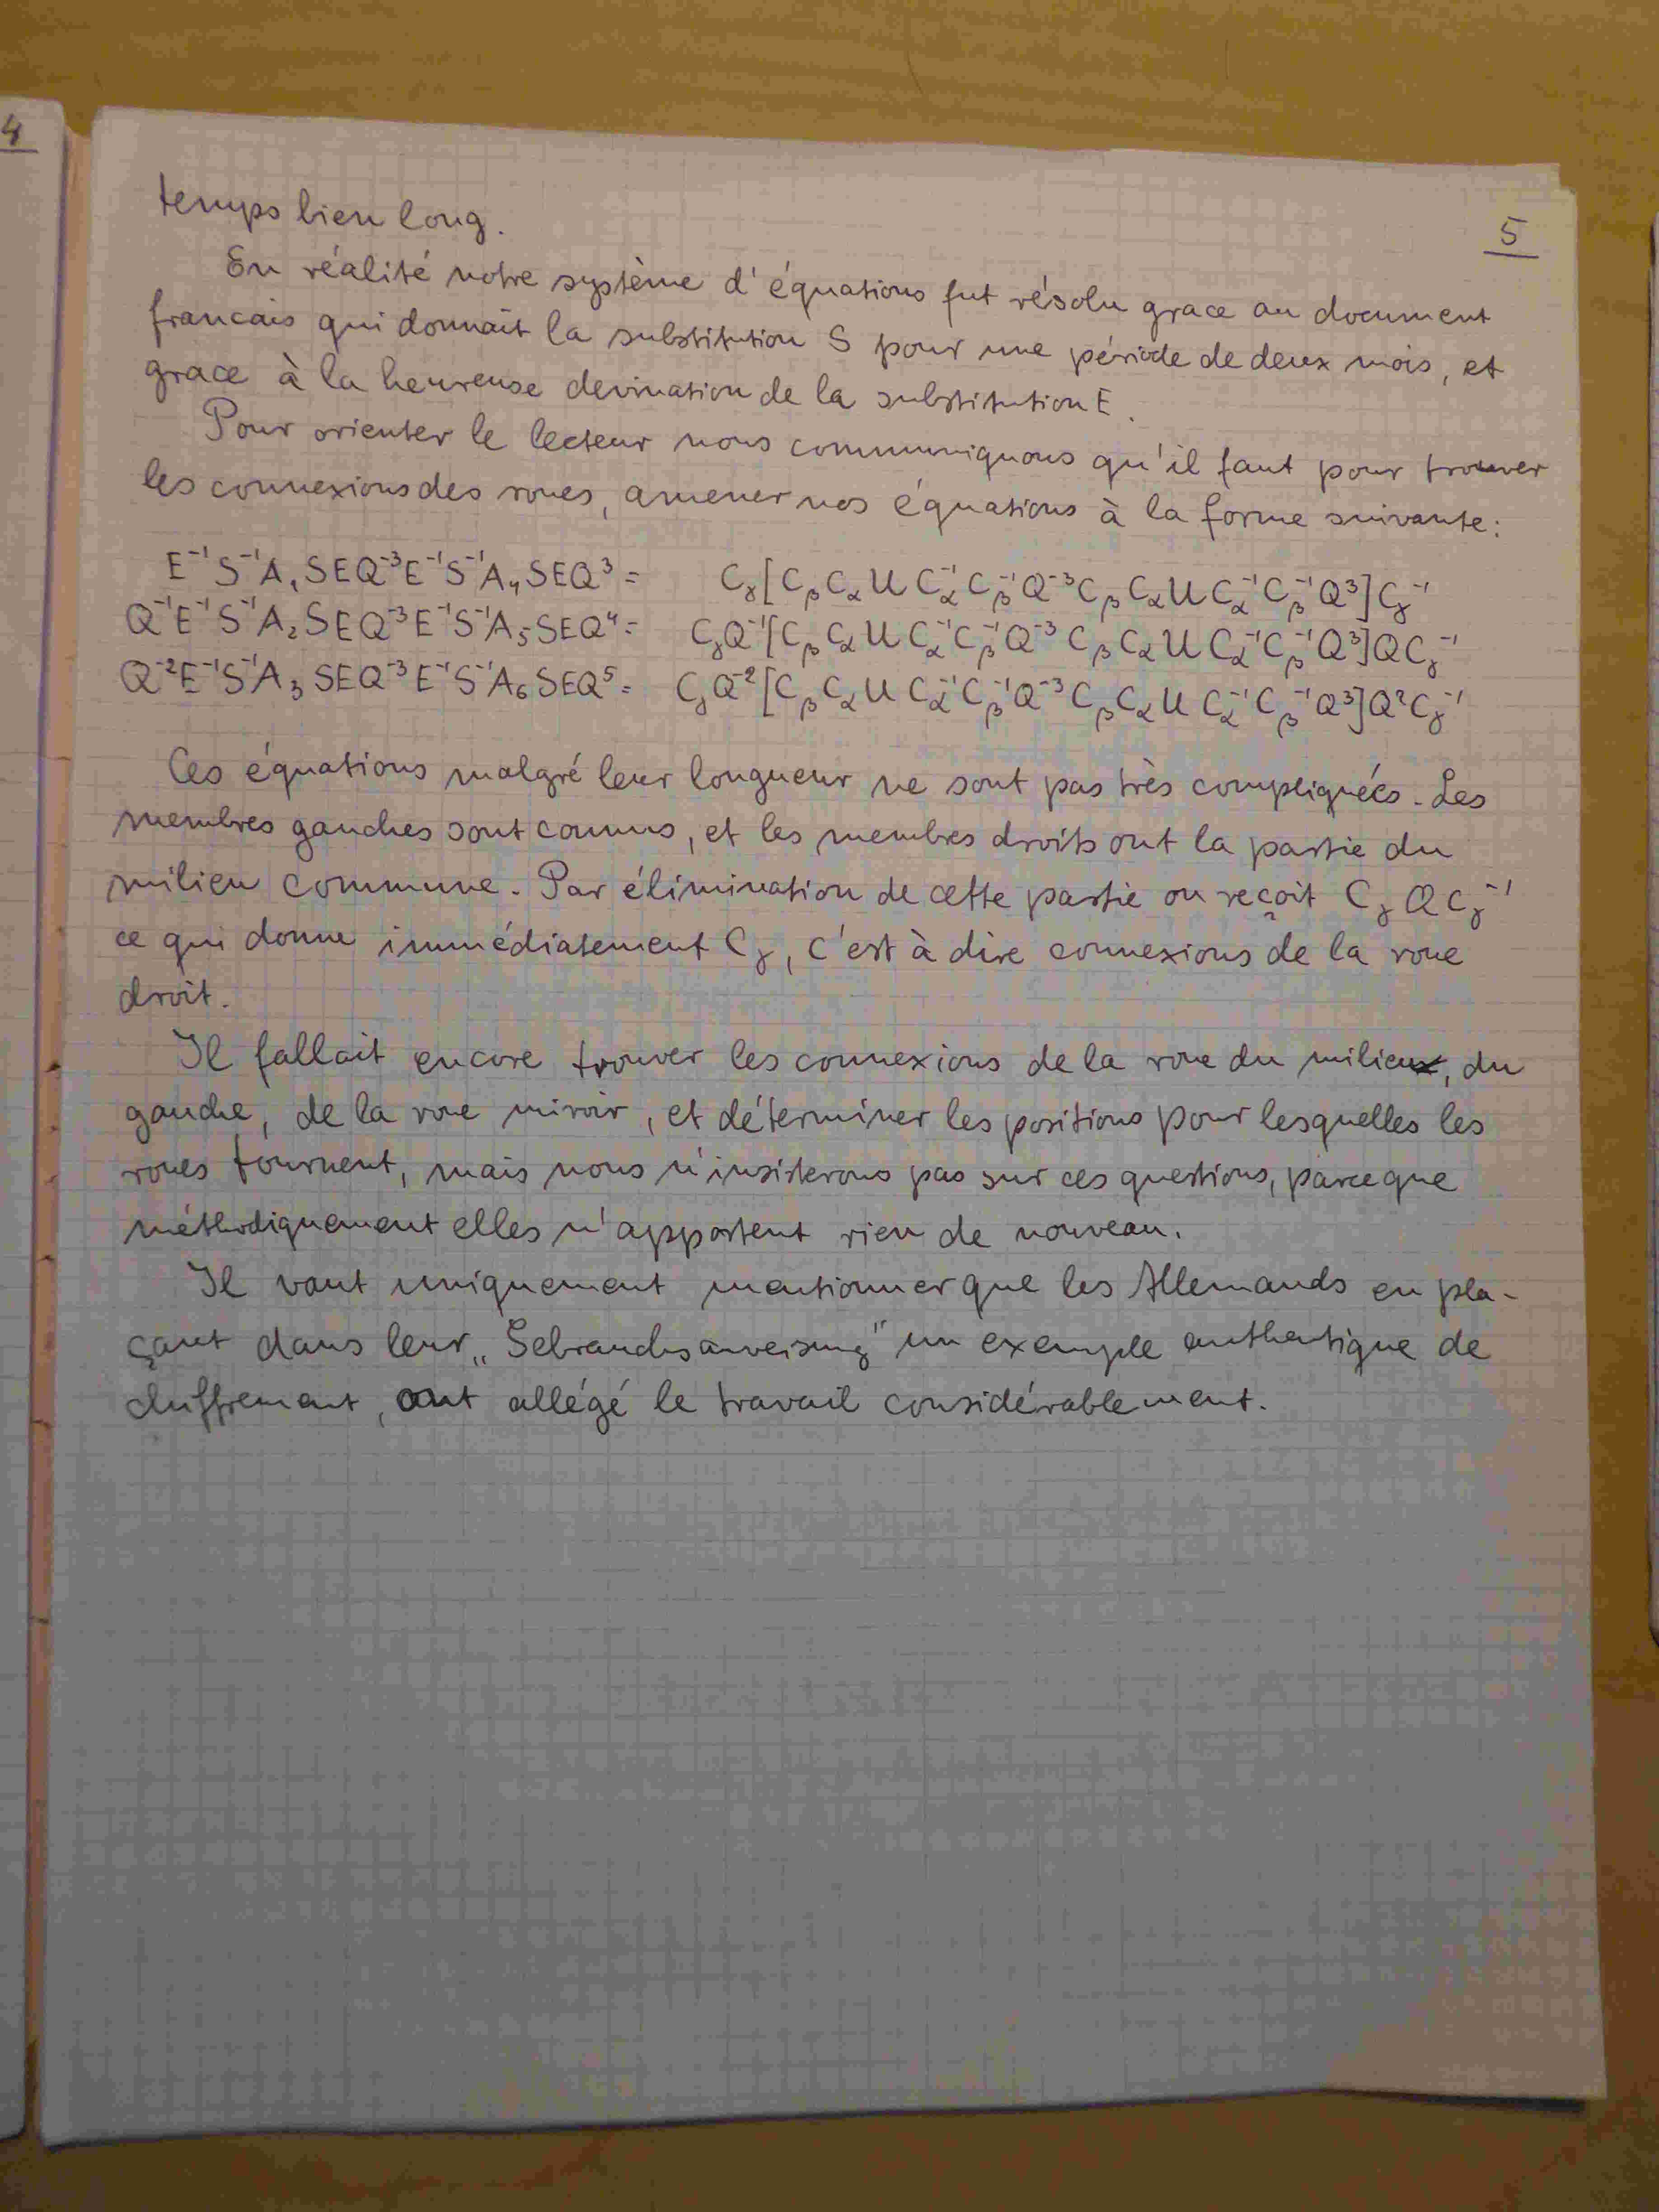 4
5
temps bien long.
En réalité notre système d'équations fut résolu grace au document
francais qui donnait la substitution S pour une période de deux mois, et
grace à la heureuse devination de la substitution E.
Pour orienter le lecteur nous communiquons qu'il faut pour trouver
les connexions des roues, amener nos équations à la forme suivante:
E⁻¹S⁻¹A₁SEQ⁻³E⁻¹S⁻¹A₄SEQ³ = Cᵧ[CᵦCαUCα⁻¹Cᵦ⁻¹Q⁻³CᵦCαUCα⁻¹Cᵦ⁻¹Q³]Cᵧ⁻¹
Q⁻¹E⁻¹S⁻¹A₂SEQ⁻³E⁻¹S⁻¹A₅SEQ⁴ = CᵧQ⁻¹[CᵦCαUCα⁻¹Cᵦ⁻¹Q⁻³CᵦCαUCα⁻¹Cᵦ⁻¹Q³]QCᵧ⁻¹
Q⁻²E⁻¹S⁻¹A₃SEQ⁻³E⁻¹S⁻¹A₆SEQ⁵ = CᵧQ⁻²[CᵦCαUCα⁻¹Cᵦ⁻¹Q⁻³CᵦCαUCα⁻¹Cᵦ⁻¹Q³]Q²Cᵧ⁻¹
Ces équations malgré leur longueur ne sont pas très compliquées. Les
membres gauches sont connus, et les membres droits ont la partie du
milieu commune. Par élimination de cette partie on reçoit CᵧQCᵧ⁻¹
ce qui donne immédiatement Cᵧ, c'est à dire connexions de la roue
droit.
Il fallait encore trouver les connexions de la roue du milieu, du
gauche, de la roue miroir, et déterminer les positions pour lesquelles les
roues tournent, mais nous n'insisterons pas sur ces questions, parce que
méthodiquement elles n'apportent rien de nouveau.
Il vaut uniquement mentionner que les Allemands en pla-
çant dans leur „Gebrauchsanweisung" un exemple authentique de
chiffrement, ont allégé le travail considérablement.